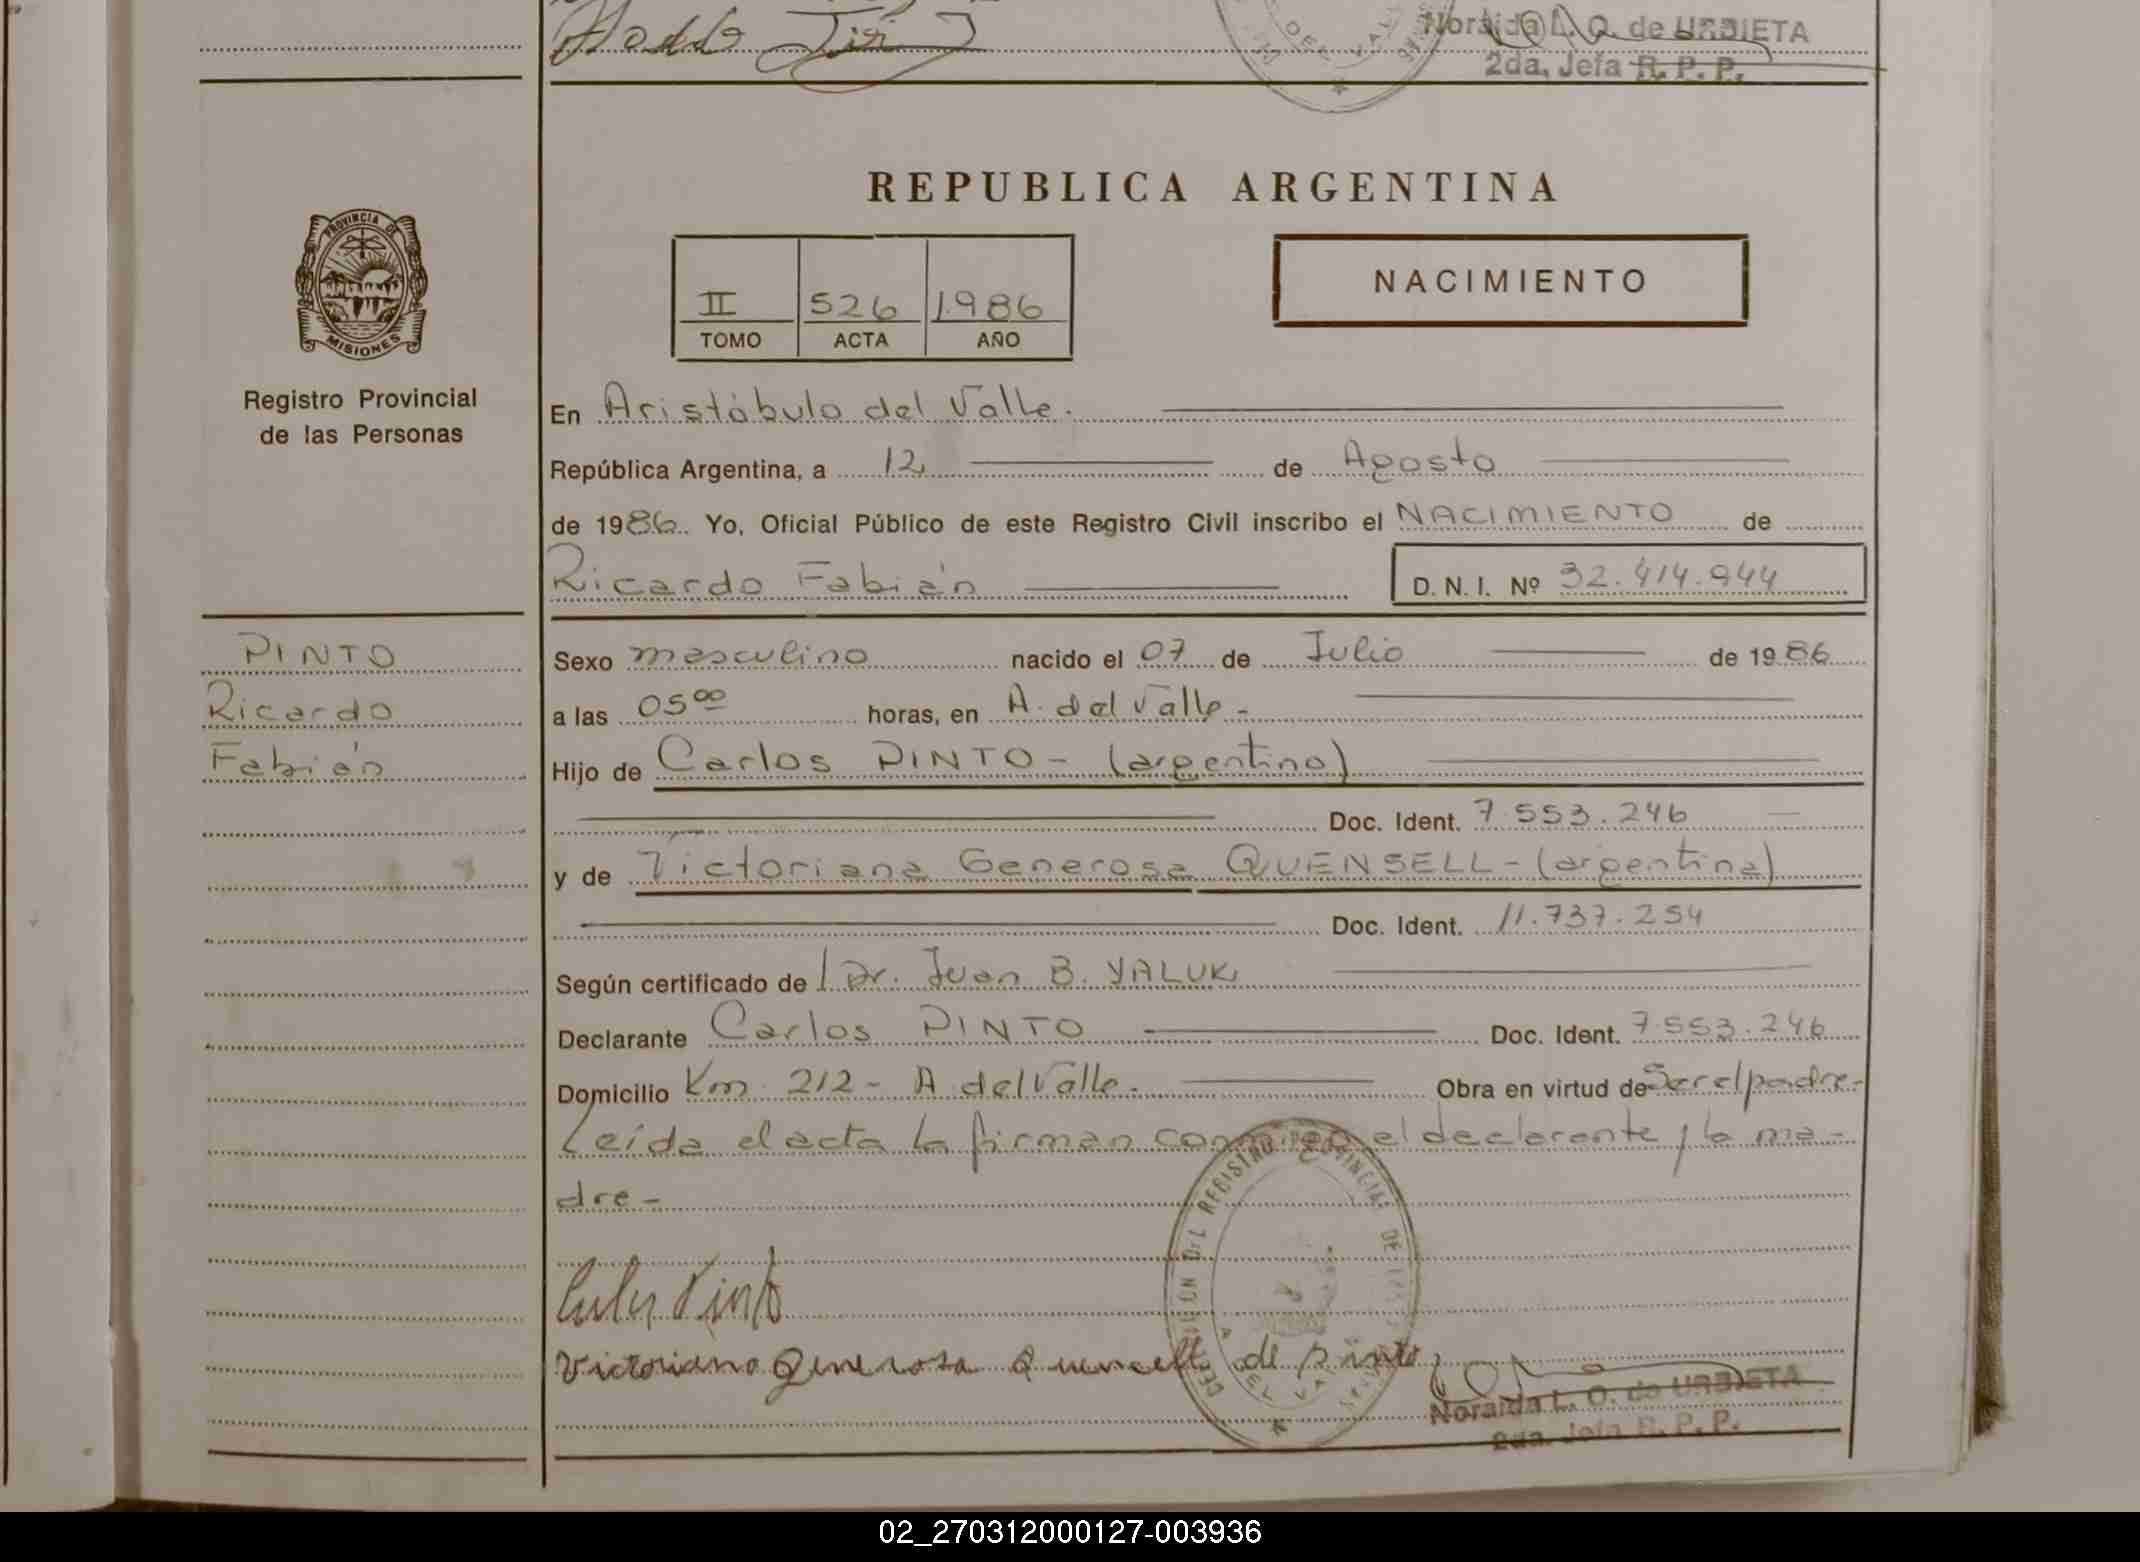 Noraida L. O. de URBIETA
2da. Jefa R. P. P.
REPUBLICA ARGENTINA
PROVINCIA DE
MISIONES
Registro Provincial
de las Personas
II 526 1986
TOMO ACTA AÑO
NACIMIENTO
En Aristóbulo del Valle.
República Argentina, a 12 de Agosto
de 1986. Yo, Oficial Público de este Registro Civil inscribo el NACIMIENTO de
Ricardo Fabián D. N. I. Nº 32.414.944
PINTO
Ricardo
Fabián
Sexo masculino nacido el 07 de Julio de 1986
a las 05⁰⁰ horas, en A. del Valle -
Hijo de Carlos PINTO - (argentino)
Doc. Ident. 7.553.246
y de Victoriana Generosa QUENSELL - (argentina)
Doc. Ident. 11.737.254
Según certificado de Dr. Juan B. YALUK
Declarante Carlos PINTO Doc. Ident. 7.553.246
Domicilio Km. 212 - A del Valle. Obra en virtud de Ser el padre-
Leída el acta la firman conmigo el declarante y la ma-
dre -
Carlos Pinto
Victoriana Generosa Quensell de Pinto
Noraida L. O. de URBIETA
2da. Jefa R. P. P.
02_270312000127-003936